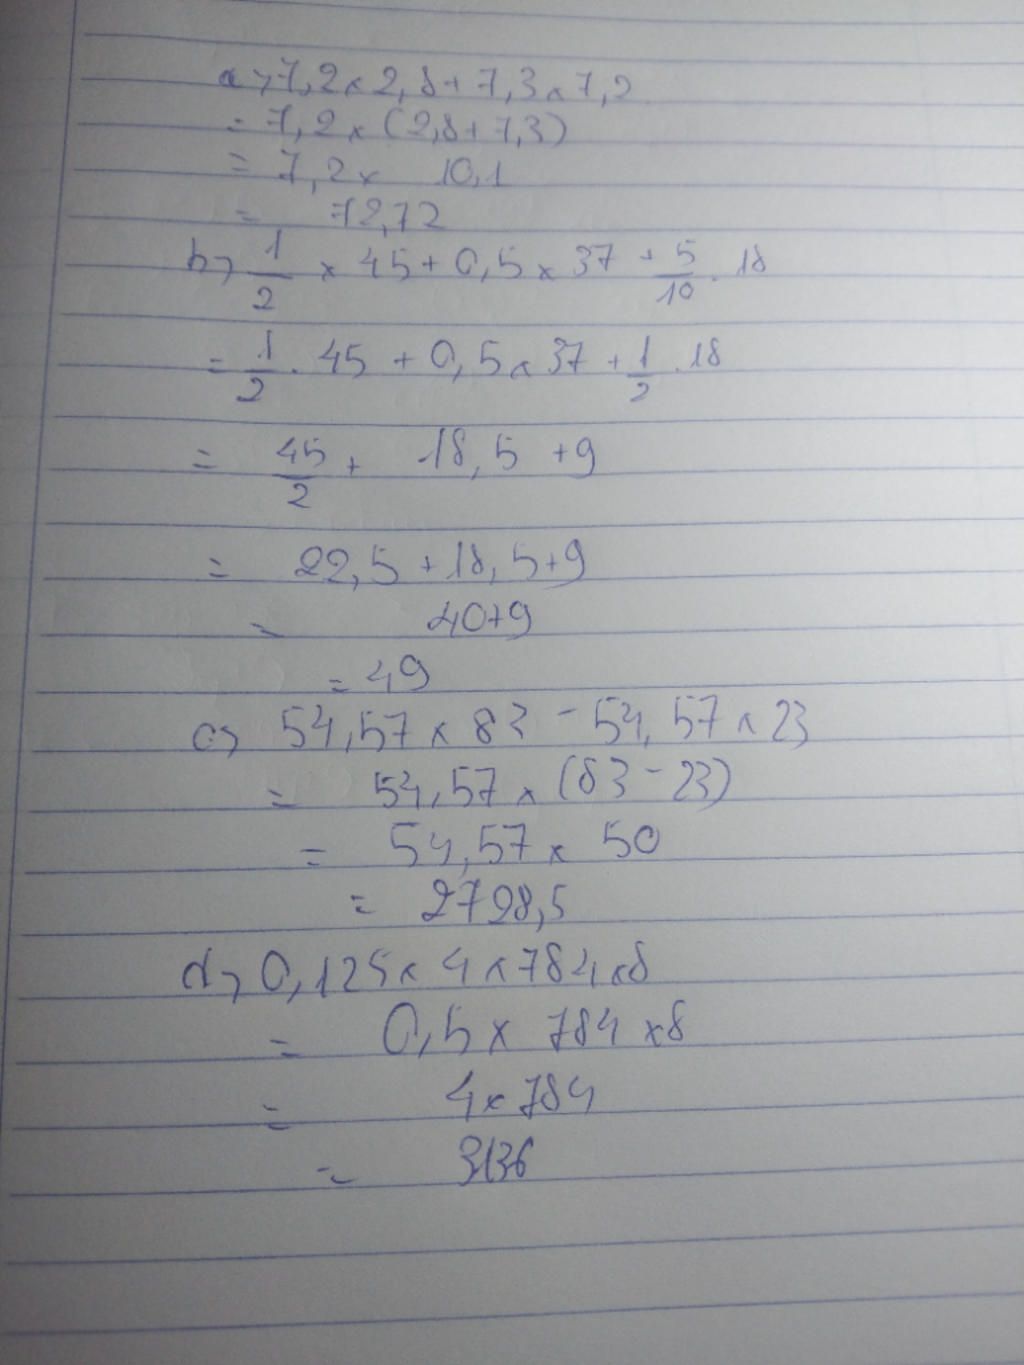 a> 7,2 x 2,8 + 7,3 x 7,2
= 7,2 x (2,8 + 7,3)
= 7,2 x 10,1
= 72,72
b> 1/2 x 45 + 0,5 x 37 + 5/10 . 18
= 1/2 . 45 + 0,5 x 37 + 1/2 . 18
= 45/2 + 18,5 + 9
= 22,5 + 18,5 + 9
= 40 + 9
= 49
c> 54,57 x 83 - 54,57 x 23
= 54,57 x (83 - 23)
= 54,57 x 50
= 2728,5
d> 0,125 x 4 x 784 x 8
= 0,5 x 784 x 8
= 4 x 784
= 3136